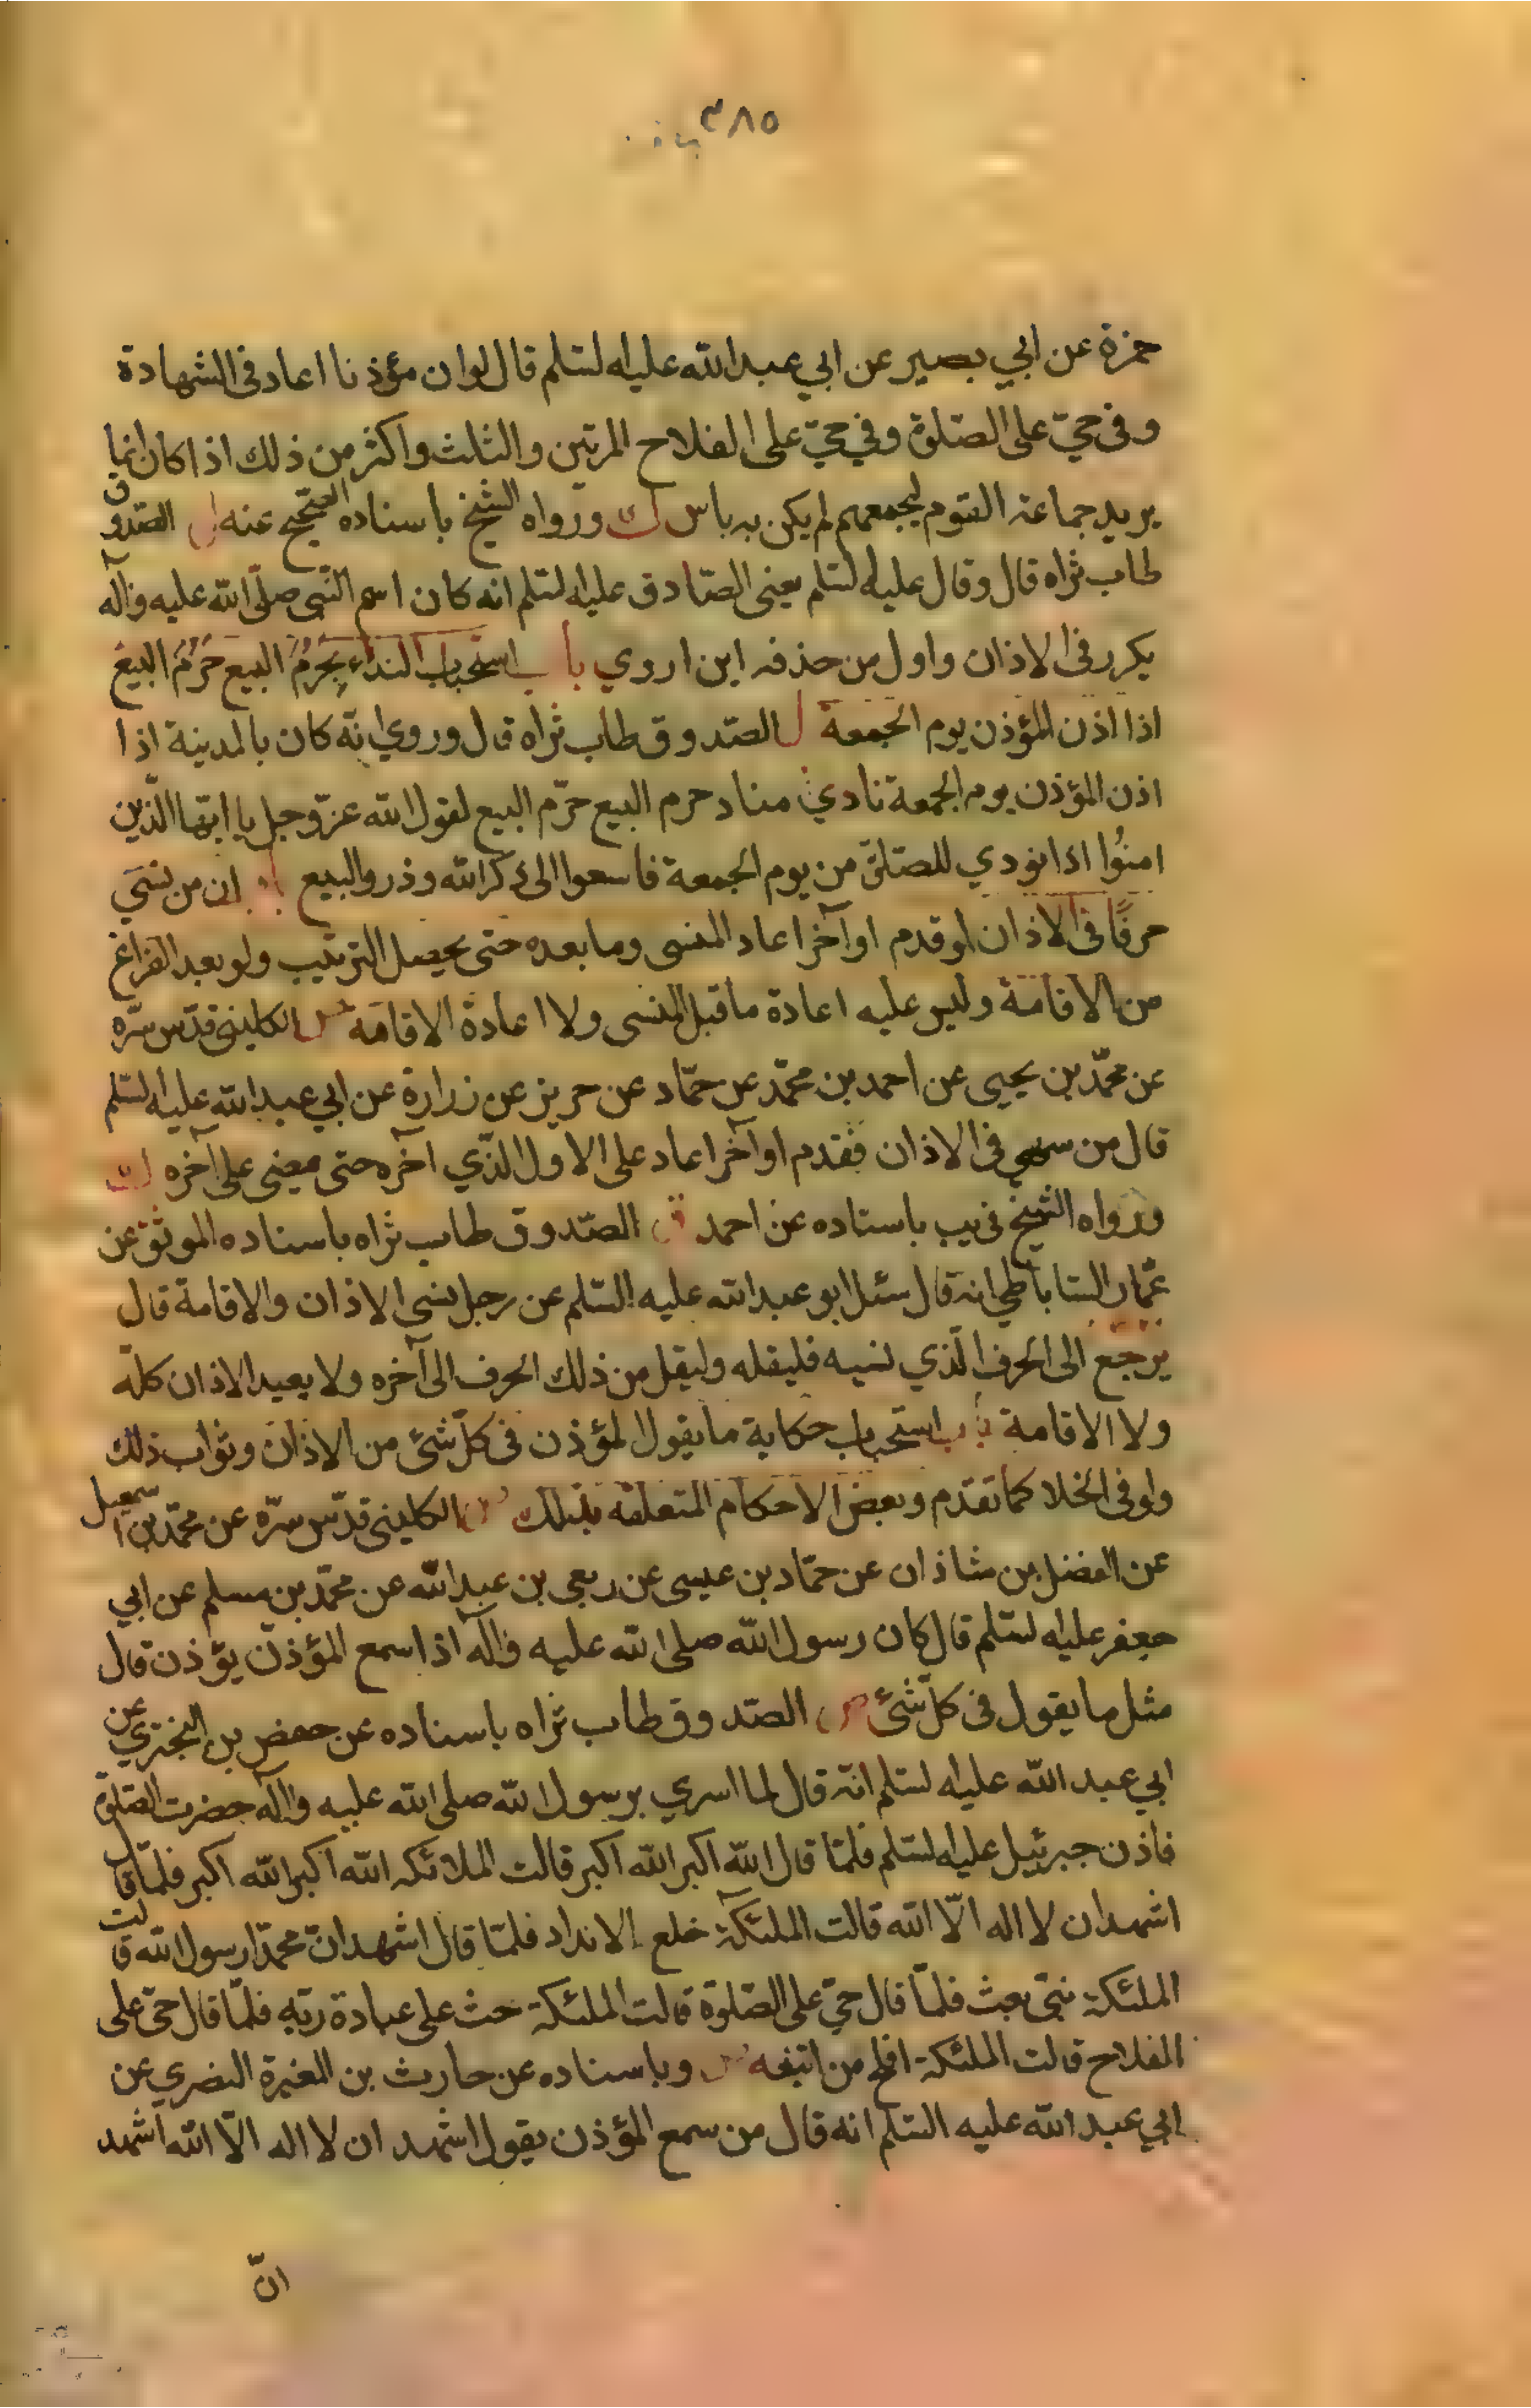 ٣٨٥
حمزة عن ابي بصير عن ابي عبدالله عليه لسلم قال لو ان مؤذنا اعاد فى الشهادة
وفى حيّ على الصّلوة وفي حيّ على الفلاح المرتين والثلث واكثر من ذلك اذا كان انما
يريد جماعة القوم ليجمعهم لم يكن به باس ورواه الشيخ باسناده الصّحيح عنه الصّدوق
طاب ثراه قال وقال عليه لسلم يعنى الصّادق عليه لسلم انه كان اسم النّبى صلّى الله عليه وآله
يكرر فى الاذان واول من حذفه ابن اروي باب استحباب النداء بحرم البيع حَرُمَ البيع
اذا اذن المؤذن يوم الجمعة الصّدوق طاب ثراه قال وروي انّه كان بالمدينة اذا
اذن المؤذن يوم الجمعة نادي مناد حرم البيع حرّم البيع لقول الله عزّوجل يا ايّها الّذين
امنُوا اذا نودي للصّلوة من يوم الجمعة فاسعوا الى ذكر الله وذروا البيع ان من نسَي
حرفًا فى الاذان او قدم او آخر اعاد المنسى وما بعده حتى يحصل الترتيب ولو بعد الفراغ
من الاقامة وليس عليه اعادة ما قبل المنسى ولا اعادة الاقامة الكلينى قدّس سرّه
عن محمّد بن يحيى عن احمد بن محمّد عن حمّاد عن حريز عن زرارة عن ابي عبدالله عليه لسّلم
قال من سهى فى الاذان فقدم او آخر اعاد على الاول الّذي آخره حتى يمضى على آخره
ورواه الشيخ فى يب باسناده عن احمد الصّدوق طاب ثراه باسناده الموثّق عن
عمّار السّاباطي انه قال سئل ابو عبدالله عليه السّلم عن رجل نسى الاذان والاقامة قال
يرجع الى الحرف الّذي نسيه فليقله وليقل من ذلك الحرف الى آخره ولا يعيد الاذان كلّه
ولا الاقامة باب استحباب حكاية ما يقول المؤذن فى كلّ شئ من الاذان وثواب ذلك
ولو فى الخلا كما تقدّم وبعض الاحكام المتعلقه بذلك الكلينى قدّس سرّه عن محمّد بن اسمعيل
عن الفضل بن شاذان عن حمّاد بن عيسى عن ربعى بن عبدالله عن محمّد بن مسلم عن ابي
جعفر عليه لسّلم قال كان رسول الله صلى الله عليه وآله اذا سمع المؤذن يؤذن قال
مثل ما يقول فى كلّ شئ الصّدوق طاب ثراه باسناده عن حفص بن البخترى عن
ابي عبد الله عليه لسلم انّه قال لما اسري برسول الله صلى الله عليه وآله حضرت الصّلوة
فاذن جبرئيل عليه لسّلم فلمّا قال الله اكبر الله اكبر قالت الملائكه الله اكبر الله اكبر فلمّا قال
اشهد ان لا اله الّا الله قالت الملئكة خلع الانداد فلمّا قال اشهد انّ محمّدا رسول الله قالت
الملئكة نبّى بعث فلمّا قال حيّ على الصّلوة قالت الملئكة حث على عبادة ربّه فلمّا قال حيّ على
الفلاح قالت الملئكة افلح من اتبعه وباسناده عن حارث بن المغيرة النضري عن
ابي عبد الله عليه السّلم انه قال من سمع المؤذن يقول اشهد ان لا اله الّا الله اشهد
انّ